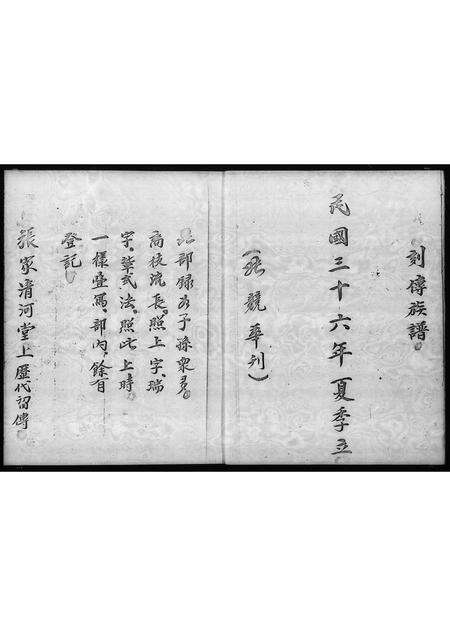 刻傳族譜
民國三十六年夏季立
(張競華刊)
部錄於子孫眾多
高枝流長。照上字、瑞
字。輩式法。照此上時
一樣登寫、部內、餘有
登記
張家清河堂上歷代留傳